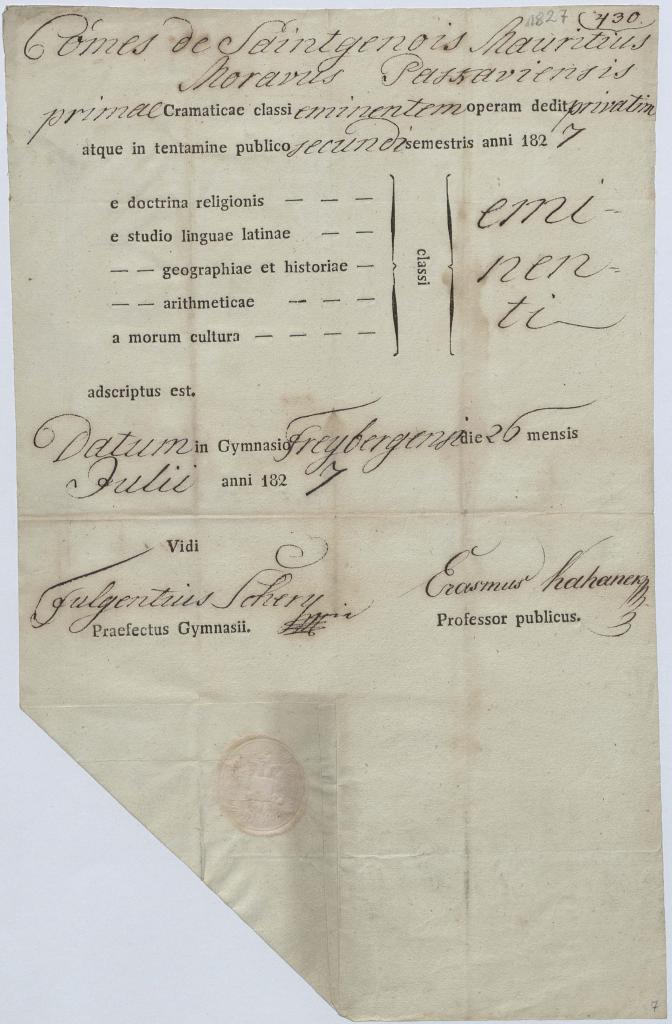 1827 (430.
Comes de Saintgenois Mauritius
Moravus Passaviensis
primae Cramaticae classi eminentem operam dedit privatim
atque in tentamine publico secundi semestris anni 1827
e doctrina religionis — — —
e studio linguae latinae — —
— — geographiae et historiae —
— — arithmeticae — — —
a morum cultura — — — —
classi
emi-
nen-
ti
adscriptus est.
Datum in Gymnasio Freybergensi die 26 mensis
Julii anni 1827
Vidi
Fulgentius Schery
Praefectus Gymnasii.
Erasmus Kahanek
Professor publicus.
7